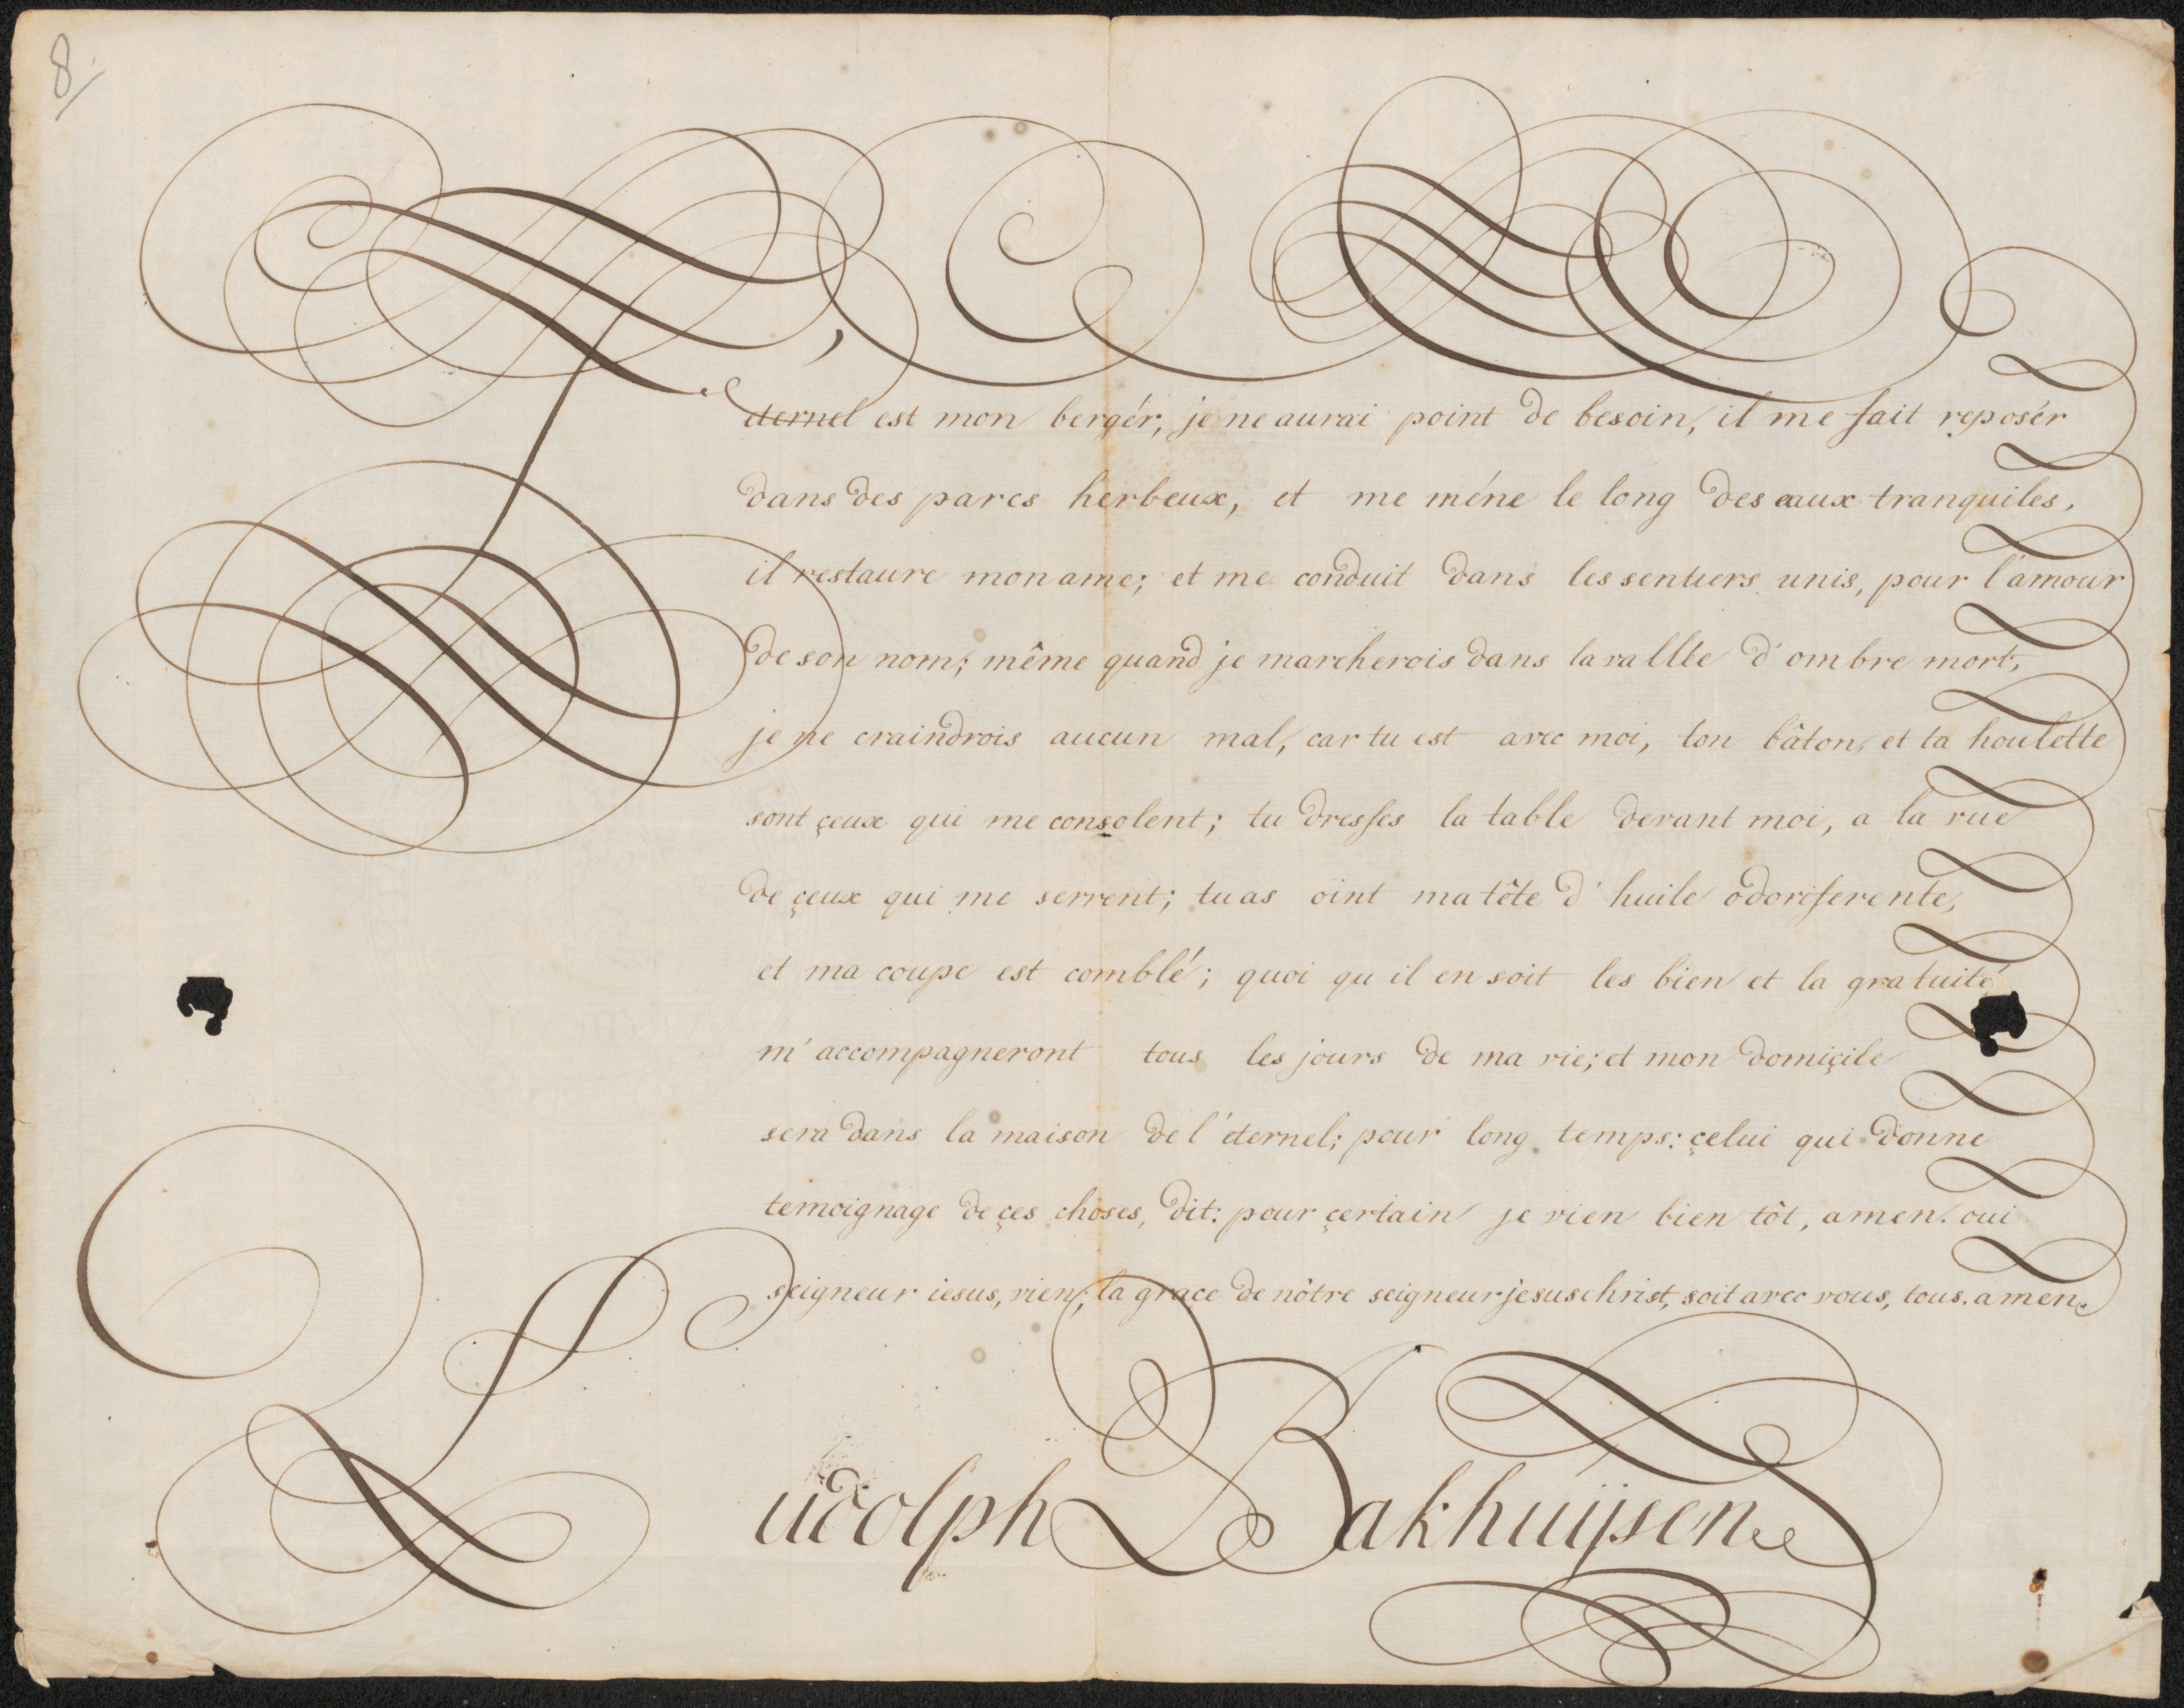 8.
L'eternel est mon bergér, je ne aurai point de besoin, il me fait reposér
dans des parcs herbeux, et me méne le long des eaux tranquiles,
il restaure mon ame; et me conduit dans les sentiers unis, pour l'amour
de son nom; même quand je marcherois dans la vallée d'ombre mort,
je ne craindrois aucun mal, car tu est avec moi, ton bâton, et ta houlette
sont çeux qui me consolent; tu dresses la table devant moi, a la vue
de çeux qui me serrent; tu as oint ma tête d'huile odoriferente,
et ma coupe est comblé; quoi qu il en soit les bien et la gratuité
m'accompagneront tous les jours de ma vie; et mon domiçile
sera dans la maison de l'éternel; pour long temps: çelui qui donne
temoignage de çes choses, dit: pour çertain je vien bien tôt, amen. oui
seigneur iesus, vien; la grace de nôtre seigneur jesus christ, soit avec vous, tous. amen.
Ludolph Bakhuijsen